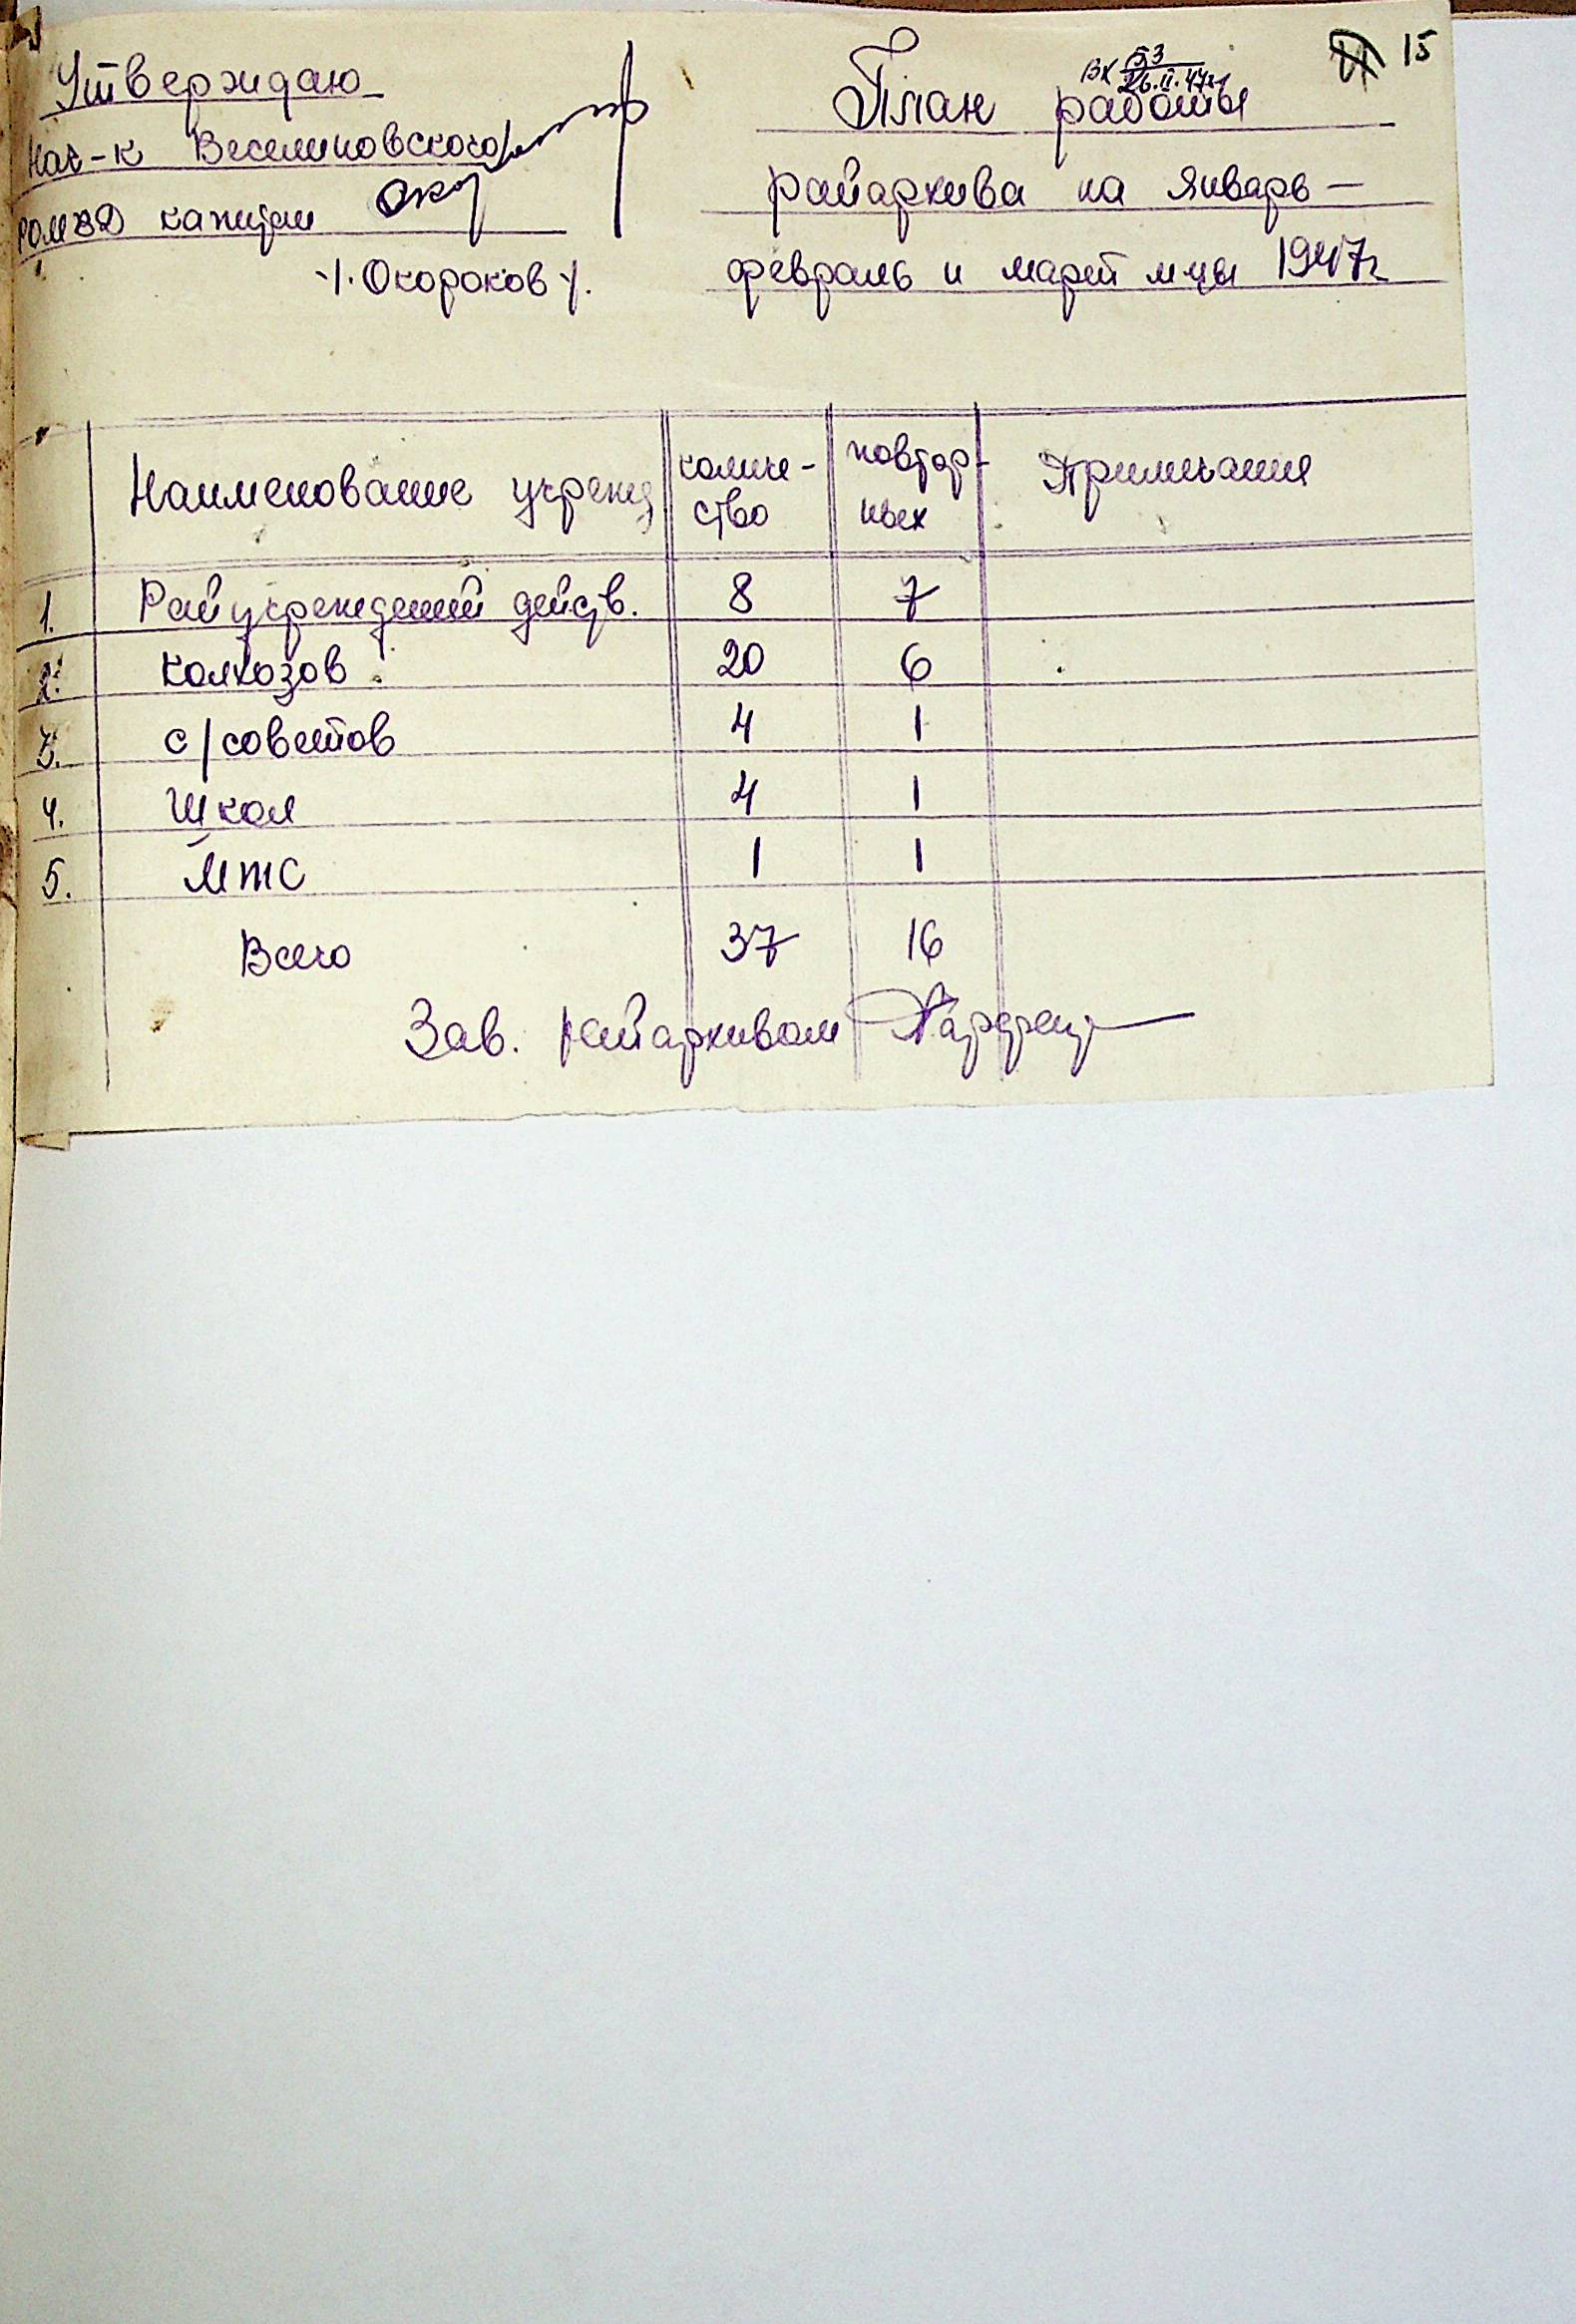 15
Вх 53
26.II.47г
Утверждаю
Нач-к Веселиновского
РОМВД капитан
/. Окороков /.
План работы
райархива на январь —
февраль и март м-цы 1947г
Наименование учрежд количе- повтор- Примечания
ство ных
1. Райучреждений действ. 8 7
2. Колхозов 20 6
3. с/советов 4 1
4. Школ 4 1
5. МТС 1 1
Всего 37 16
Зав. райархивом